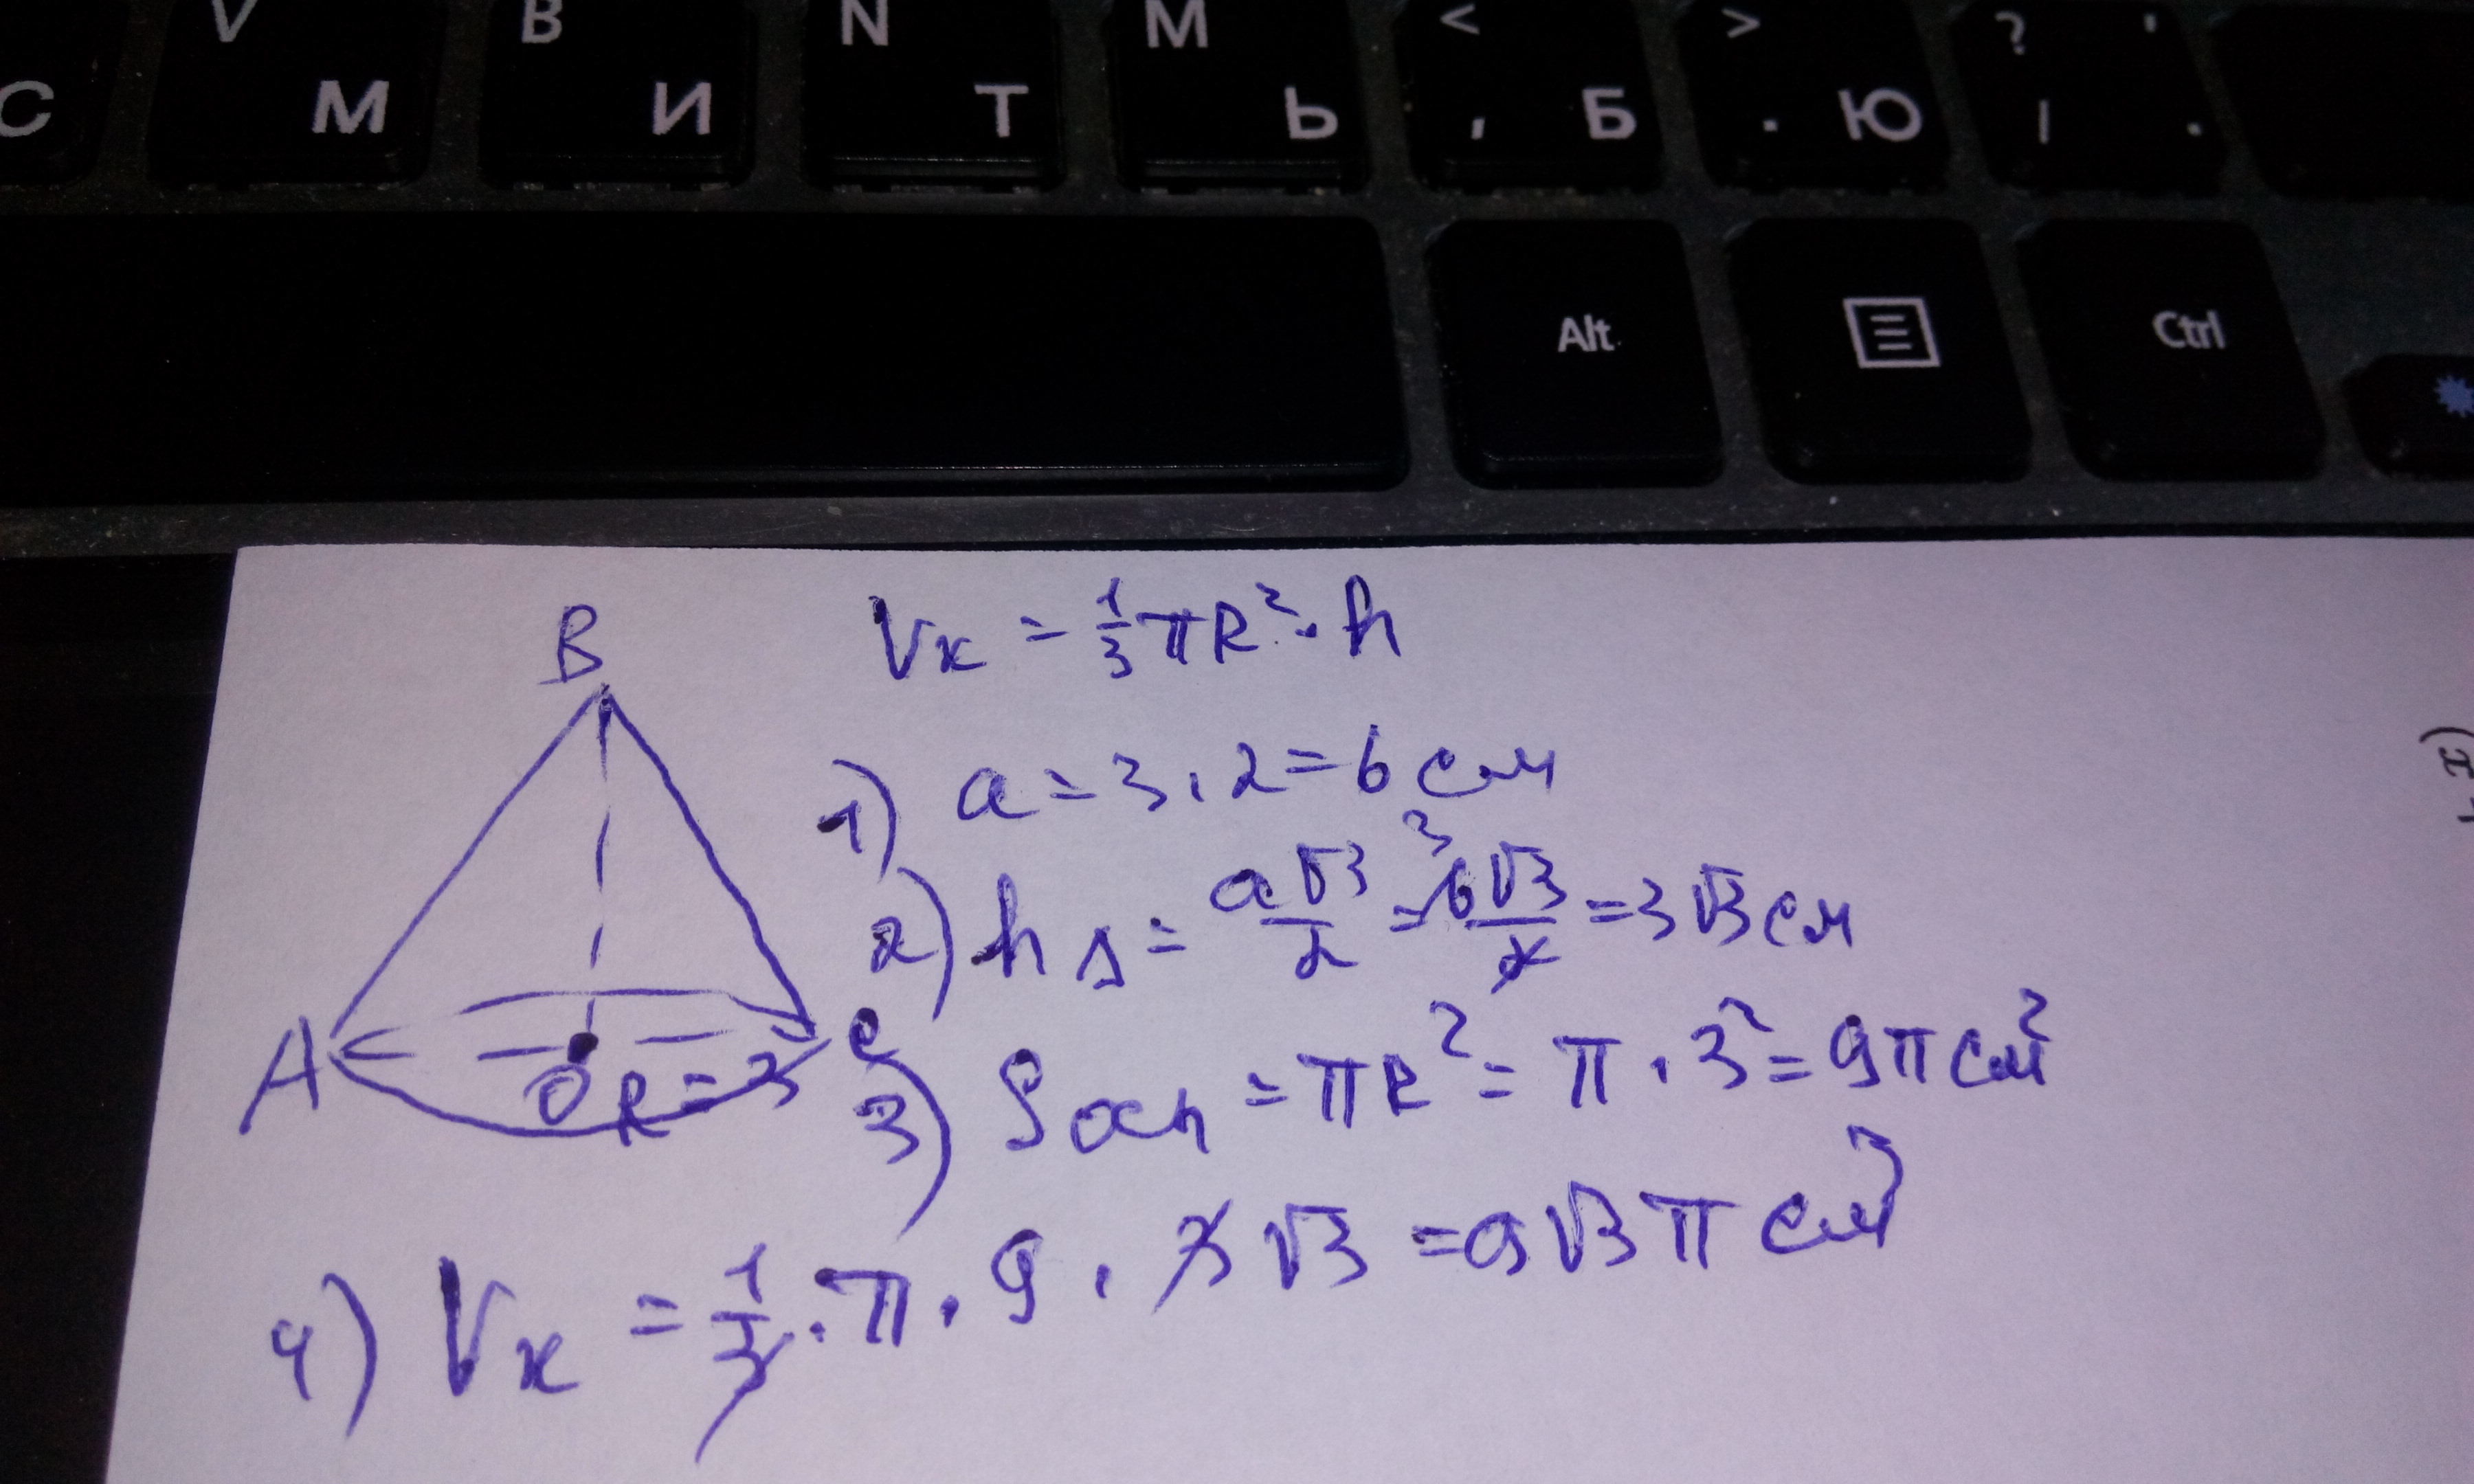 V B N M < > ? '
С М И Т Ь , Б . Ю / .
Alt Ctrl
B
Vк = 1/3 πR² · h
1) a = 3 · 2 = 6 см
2) h Δ = a√3/2 = 6√3/2 = 3√3 см
3
A O R = 3 C
3) Sосн = πR² = π · 3² = 9π см²
4) Vк = 1/3 · π · 9 · 3√3 = 9√3 π см³